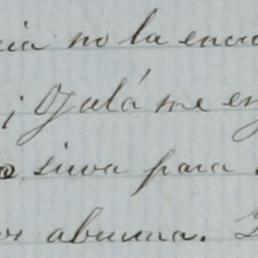 cia no la encu
¡Ojalá me en
sirva para
abruma.